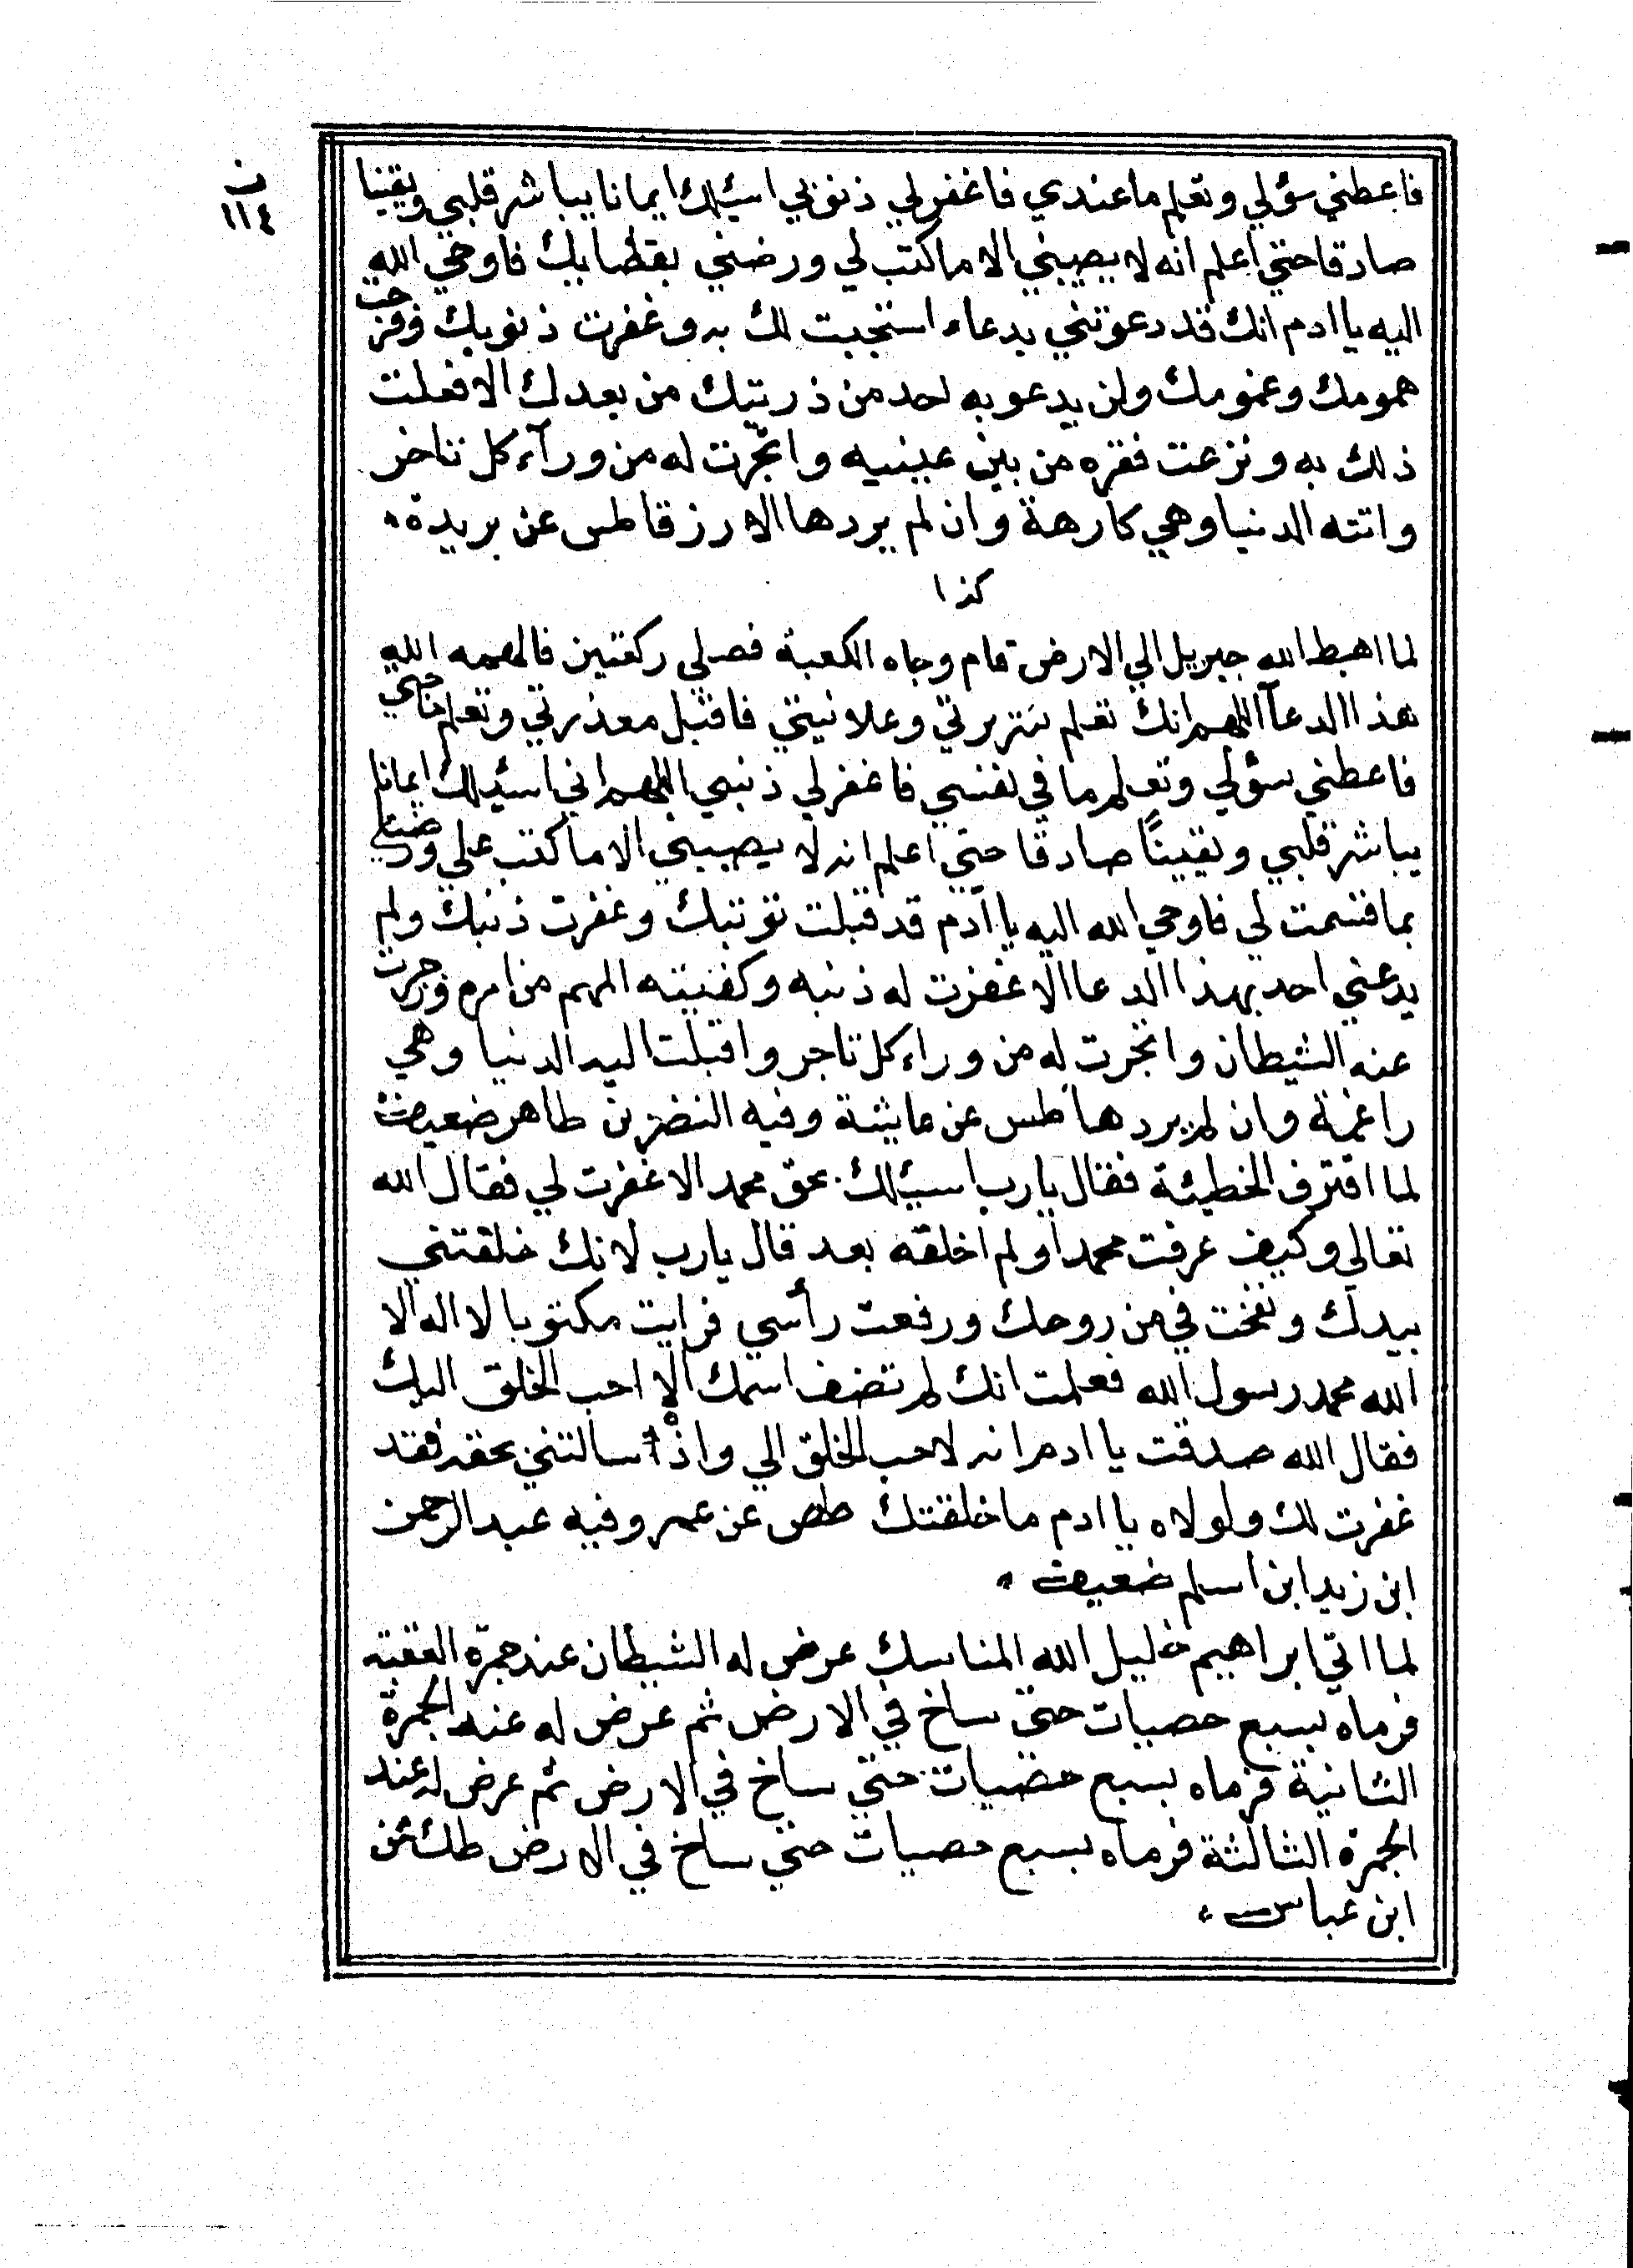 ن
١١٤
فاعطني سؤلي وتعلم ما عندي فاغفر لي ذنوبي اسئلك ايمانا يباشر قلبي ويقينا
صادقا حتي اعلم انه لا يصيبني الا ما كتب لي ورضني بقضايك فاوحي الله
اليه يا ادم انك قد دعوتني بدعاء استجبت لك به وغفرت ذنوبك وفرجت
همومك وغمومك ولن يدعو به احد من ذريتك من بعدك الا فعلت
ذلك به ونزعت فقره من بين عينيه واتجرت له من ورآء كل تاجر
واتته الدنيا وهي كارهة وان لم يردها الا رزقا طس عن بريدة
كذا
لما اهبط الله جبريل الي الارض قام وجاه الكعبة فصلي ركعتين فالهمه الله
هذا الدعآ اللهم انك تعلم سريرتي وعلانيتي فاقبل معذرتي وتعلم حاجتي
فاعطني سؤلي وتعلم ما في نفسي فاغفر لي ذنبي اللهم اني اسئلك ايمانا
يباشر قلبي ويقينًا صادقا حتي اعلم انه لا يصيبني الا ما كتب علي ورضني
بما قسمت لي فاوحي الله اليه يا آدم قد قبلت توبتك وغفرت ذنبك ولم
يدعني احد بهذا الدعا الا غفرت له ذنبه وكفيته المهم من امره وزجرت
عنه الشيطان واتجرت له من وراء كل تاجر واقبلت اليه الدنيا وهي
راغمة وان لم يردها طس عن عايشة وفيه النضر بن طاهر ضعيف
لما اقترف الخطيئة فقال يا رب اسئلك بحق محمد الا غفرت لي فقال الله
تعالي وكيف عرفت محمدا ولم اخلقه بعد قال يا رب لانك خلقتني
بيدك ونفخت في من روحك ورفعت رأسي فرايت مكتوبا لا اله الا
الله محمد رسول الله فعلمت انك لم تضف اسمك الا احب الخلق اليك
فقال الله صدقت يا ادم انه لاحب الخلق الي واذْ سالتني بحقه فقد
غفرت لك ولولاه يا ادم ما خلقتك طص عن عمر وفيه عبد الرحمن
ابن زيد ابن اسلم ضعيف
لما اتي ابراهيم خليل الله المناسك عرض له الشيطان عند جمرة العقبة
فرماه بسبع حصيات حتي ساخ في الارض ثم عرض له عند الجمرة
الثانية فرماه بسبع حصيات حتي ساخ في الارض ثم عرض له عند
الجمرة الثالثة فرماه بسبع حصيات حتي ساخ في الارض طك عن
ابن عباس